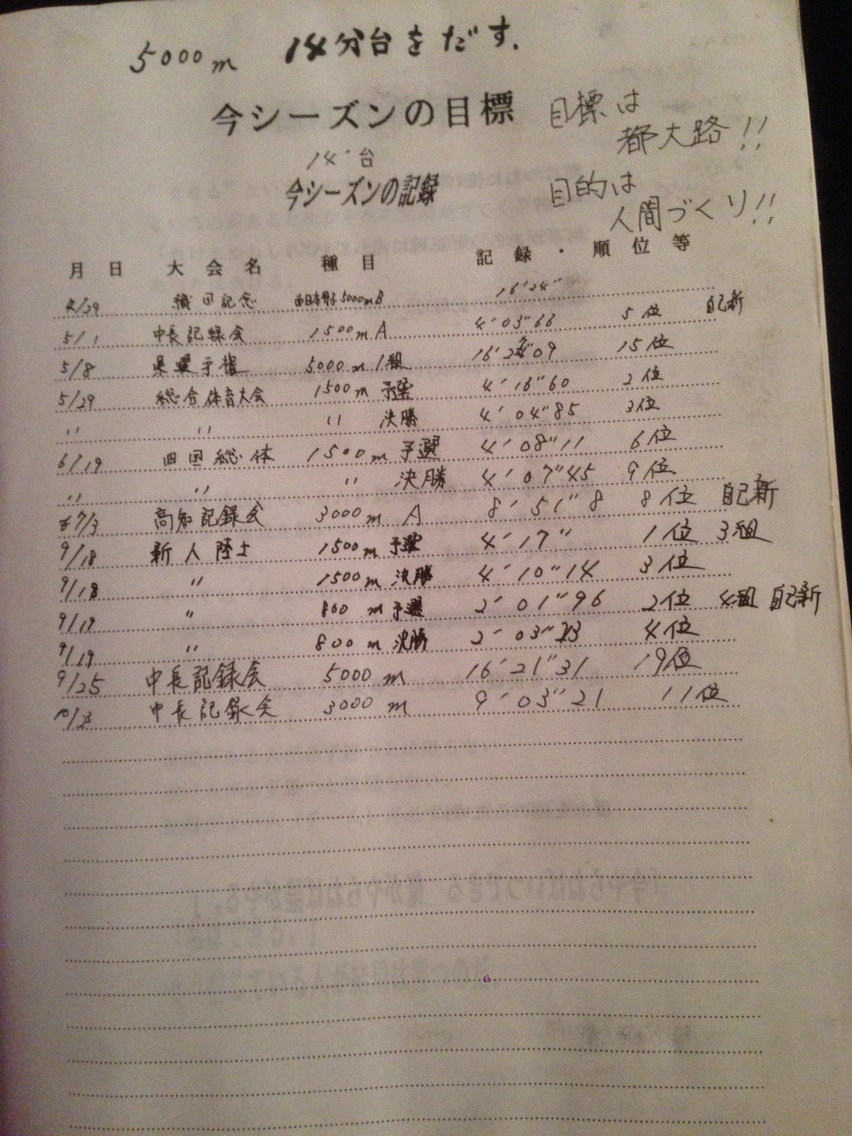 5000m 14分台をだす.
今シーズンの目標
目標は
都大路!!
14'台
今シーズンの記録
目的は
人間づくり!!
月 日 大 会 名 種 目 記 録 ・ 順 位 等
4/29 織田記念 5000mB 16'24"
5/1 中長記録会 1500m A 4'03"66 5位 自己新
5/8 県選手権 5000m 1組 09 15位
5/29 総合体育大会 1500m 予選 4'16"60 2位
〃 〃 〃 決勝 4'04"85 3位
6/19 四国総体 1500m 予選 4'08"11 6位
〃 〃 〃 決勝 4'07"45 9位
7/3 高知記録会 3000m A 8'51"8 8位 自己新
9/18 新人陸上 1500m 予選 4'17" 1位 3組
9/18 〃 1500m 決勝 4'10"14 3位
9/19 〃 800m 予選 2'01"96 2位 4組 自己新
9/19 〃 800m 決勝 2'03"23 4位
9/25 中長記録会 5000m 16'21"31 19位
中長記録会 3000m 9'03"21 11位